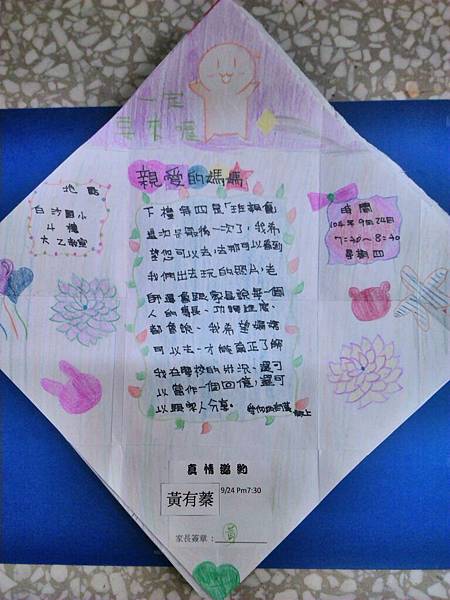 一定
要來喔
親愛的媽媽
地點
白沙國小
4樓
六乙教室
時間
104年9月24日
7:40~8:40
星期四
下禮拜四是「班親會」
這次是最後一次了,我希
望您可以去,去那可以看到
我們出去玩的照片,老
師還會跟家長說每一個
人的專長、功課進度,
都會說、我希望媽媽
可以去,才能真正了解
我在學校的狀況,還可
以當作一個回憶,還可
以跟家人分享。
敬上
真情邀約
黃有蓁
9/24 Pm7:30
家長簽章: